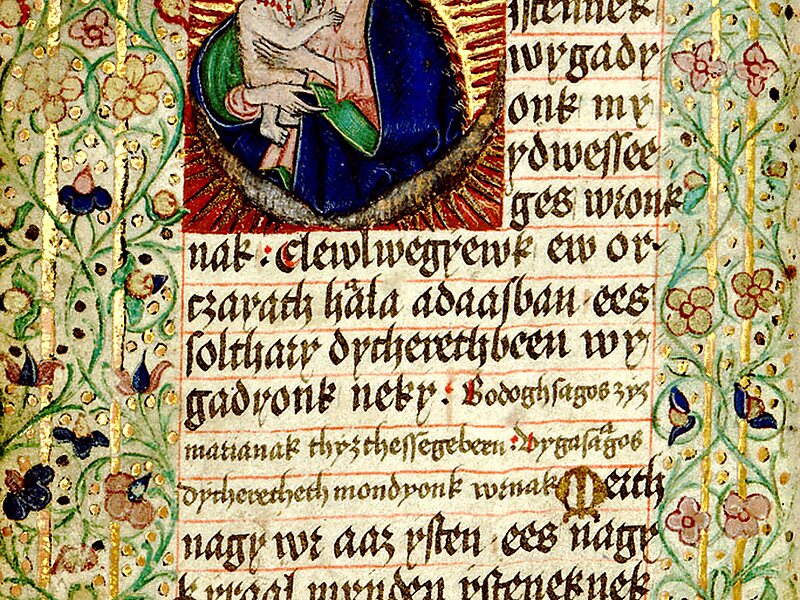 ystennek
wygady
onk my
ydwessee
ges wronk
nak : Elewlwegyewk ew or-
czayath hála adaasban ees
solthary dycherethbeen wy
gadyonk neky : Bodoghsagos zyz
marianak thyzthessegebeen : Vygasagos
dycheretheth mondyonk wrnak Merth
nagy wr aaz ysten ees nagy
kyraal mynden ysteneknek